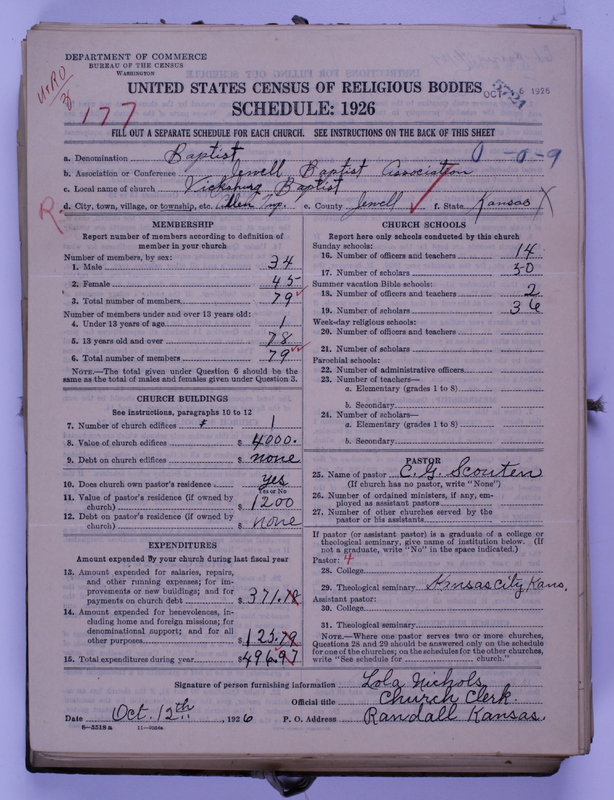 DEPARTMENT OF COMMERCE
BUREAU OF THE CENSUS
WASHINGTON
UNITED STATES CENSUS OF RELIGIOUS BODIES
OCT 6 1926
SCHEDULE: 1926
177
FILL OUT A SEPARATE SCHEDULE FOR EACH CHURCH. SEE INSTRUCTIONS ON THE BACK OF THIS SHEET
a. Denomination Baptist 0-0-9
b. Association or Conference Jewell Baptist Association
c. Local name of church Vicksburg Baptist
R.
d. City, town, village, or township, etc. Allen Twp. e. County Jewell f. State Kansas X
MEMBERSHIP
Report number of members according to definition of
member in your church
Number of members, by sex:
1. Male 34
2. Female 45
3. Total number of members 79
Number of members under and over 13 years old:
4. Under 13 years of age 1
5. 13 years old and over 78
6. Total number of members 79
NOTE.—The total given under Question 6 should be
same as the total of males and females given under Question 3.
CHURCH BUILDINGS
See instructions, paragraphs 10 to 12
7. Number of church edifices 1
8. Value of church edifices $ 4000.
9. Debt on church edifices $ none
10. Does church own pastor's residence yes
Yes or No
11. Value of pastor's residence (if owned by
church) $ 1200
12. Debt on pastor's residence (if owned by
church) $ none
EXPENDITURES
Amount expended by your church during last fiscal year
13. Amount expended for salaries, repairs,
and other running expenses; for im-
provements or new buildings; and for
payments on church debt $ 371.18
14. Amount expended for benevolences, in-
cluding home and foreign missions; for
denominational support; and for all
other purposes $ 125.79
15. Total expenditures during year $ 496.97
CHURCH SCHOOLS
Report here only schools conducted by this church
Sunday schools:
16. Number of officers and teachers 14
17. Number of scholars 50
Summer vacation Bible schools:
18. Number of officers and teachers 2
19. Number of scholars 36
Week-day religious schools:
20. Number of officers and teachers
21. Number of scholars
Parochial schools:
22. Number of administrative officers
23. Number of teachers—
a. Elementary (grades 1 to 8)
b. Secondary
24. Number of scholars—
a. Elementary (grades 1 to 8)
b. Secondary
PASTOR
25. Name of pastor C. G. Scouten
(If church has no pastor, write "None")
26. Number of ordained ministers, if any, em-
ployed as assistant pastors
27. Number of other churches served by the
pastor or his assistants
If pastor (or assistant pastor) is a graduate of a college or
theological seminary, give name of institution below. (If
not a graduate, write "No" in the space indicated.)
Pastor: 4
28. College
29. Theological seminary Kansas City Kans.
Assistant pastor:
30. College
31. Theological seminary
NOTE.—Where one pastor serves two or more churches,
Questions 28 and 29 should be answered only on the schedule
for one of the churches; on the schedules for the other churches,
write "See schedule for church."
Signature of person furnishing information Lola Nichols
Official title Church Clerk.
Date Oct. 12th, 1926 P. O. Address Randall Kansas.
8—5518a